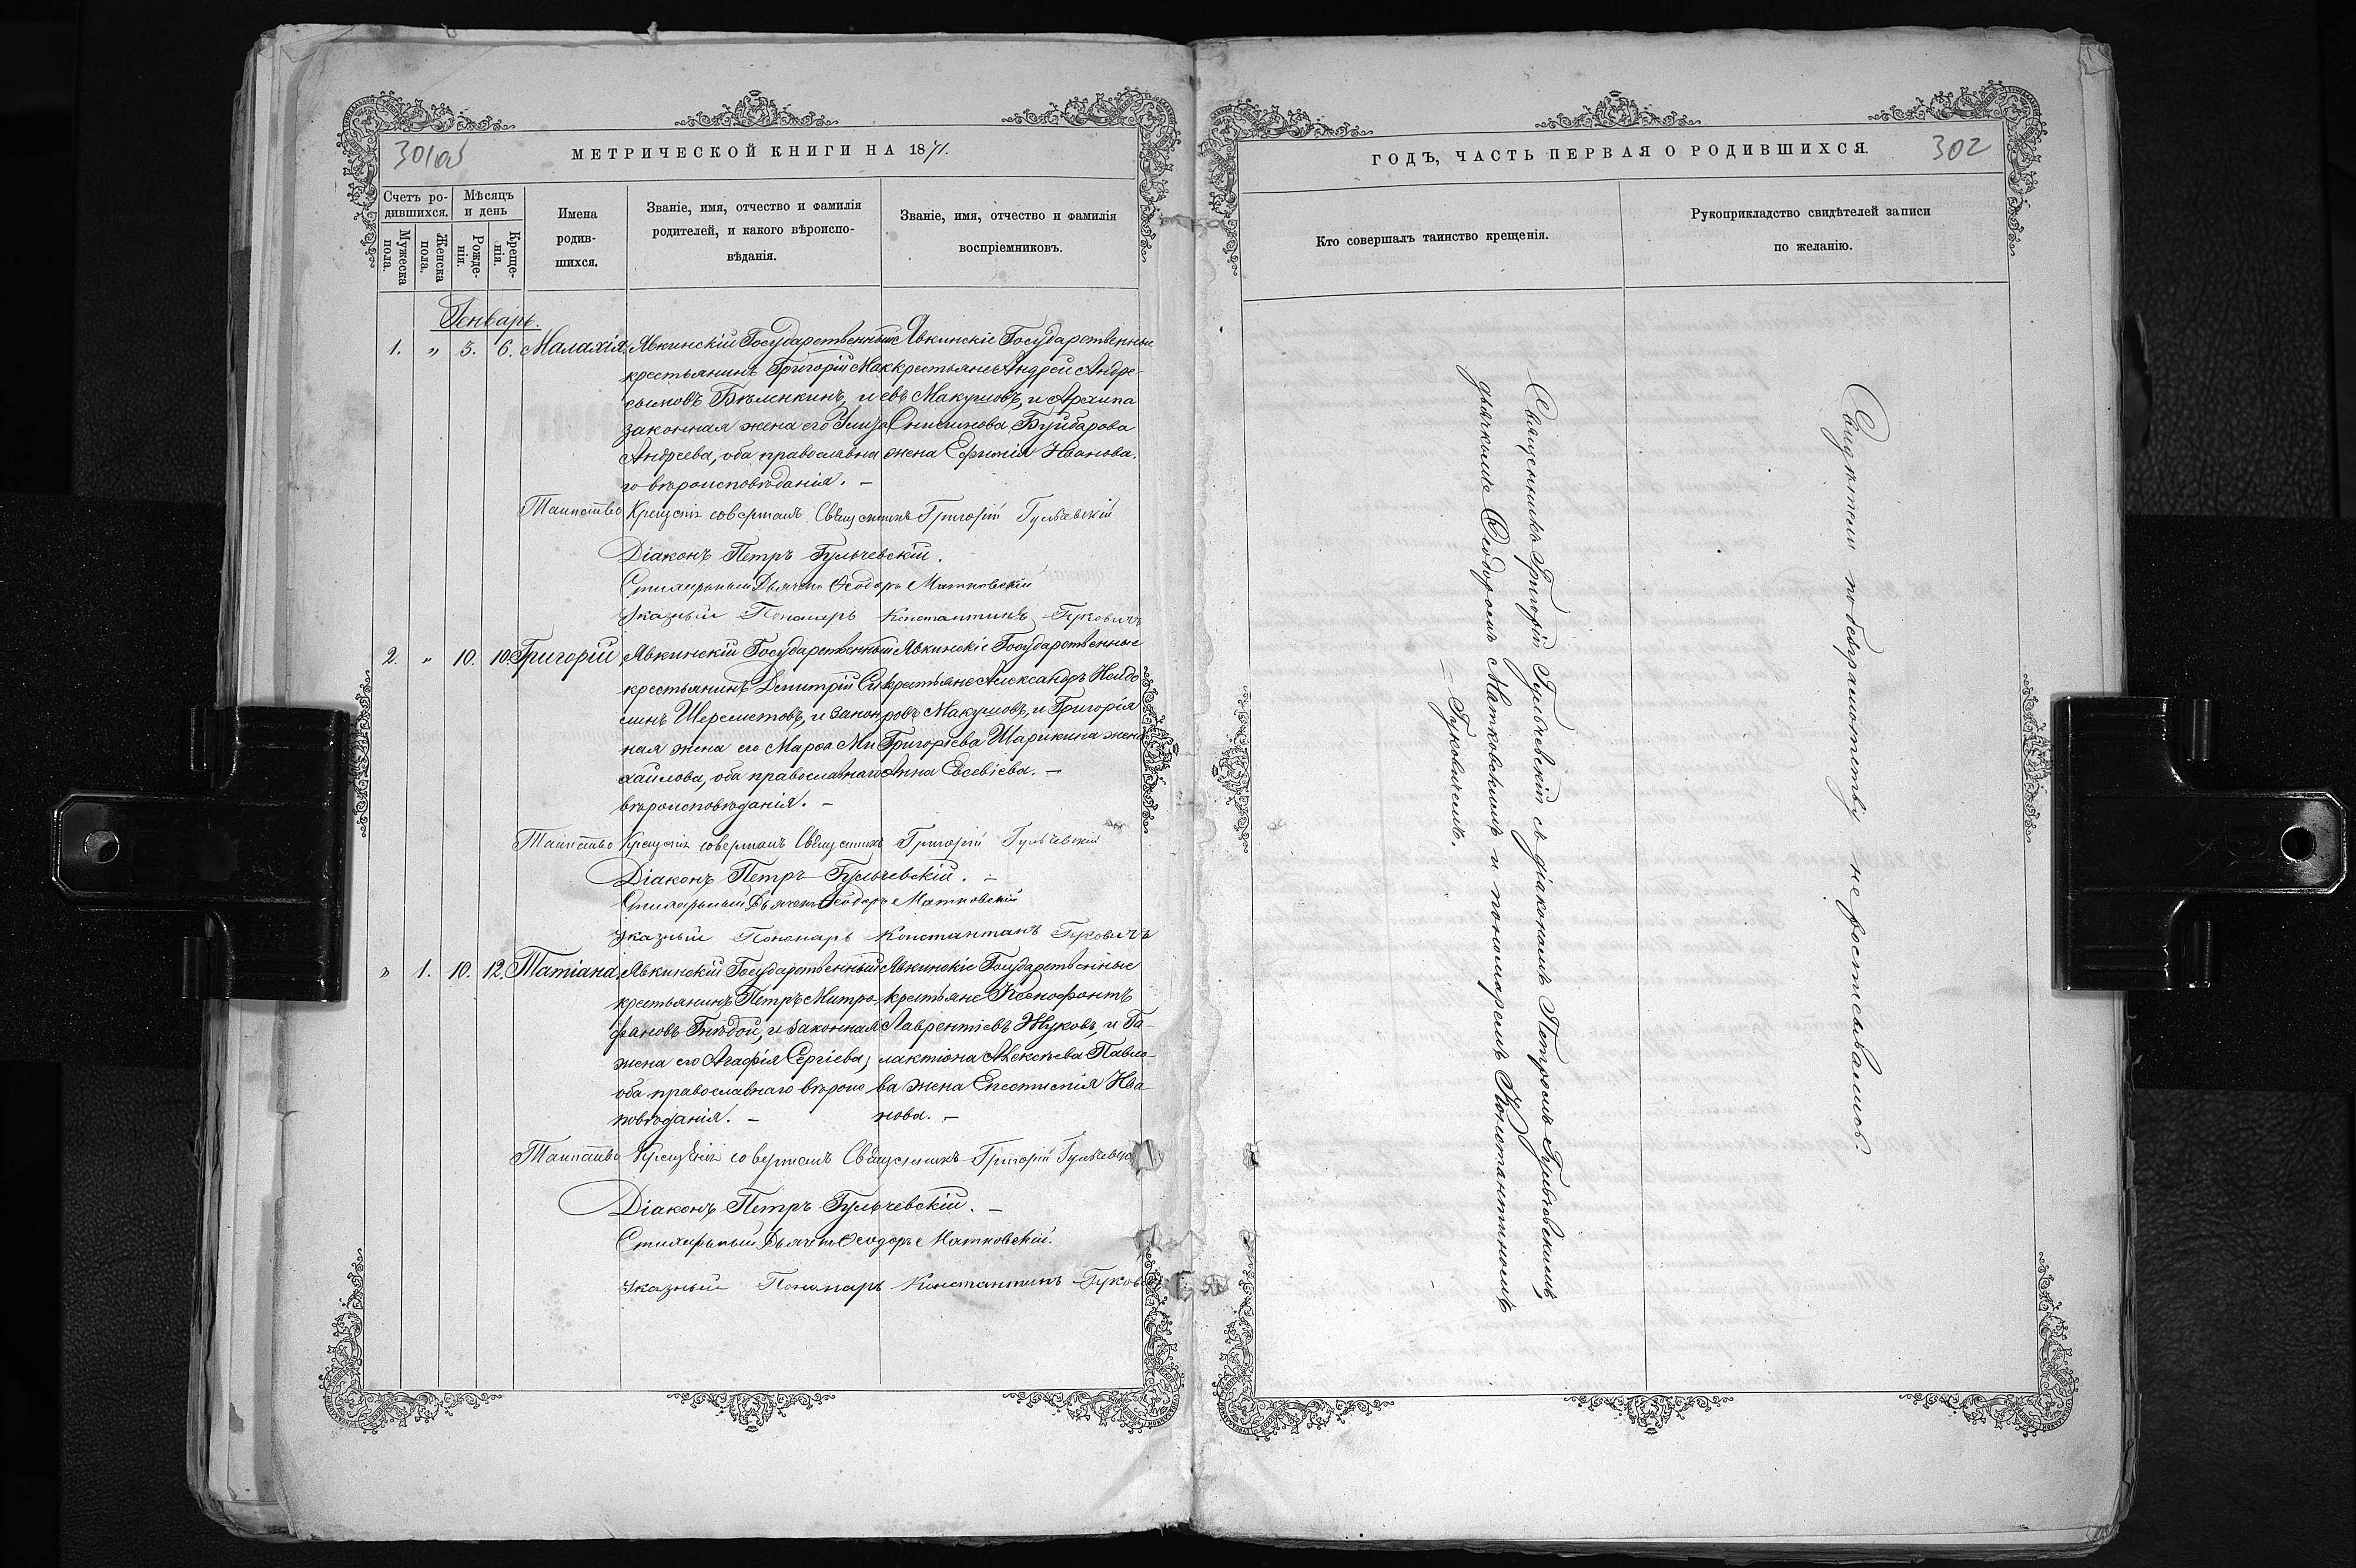 301об
МЕТРИЧЕСКОЙ КНИГИ НА 1871.
Счетъ ро-
дившихся.
Мѣсяцъ
и день
Мужеска
пола.
Женска
пола.
Рожде-
нія.
Креще-
нія.
Имена
родив-
шихся.
Званіе, имя, отчество и фамилія
родителей, и какого вѣроиспо-
вѣданія.
Званіе, имя, отчество и фамилія
воспріемниковъ.
Генварь.
1. „ 3. 6. Малахія Явкинскій Государственный
крестьянинъ Григорій Мак
симовъ Бѣленкинъ, и
законная жена его
Андреева, оба православна
го вѣроисповѣданія. –
Явкинскіе Государственные
крестьяне Андрей Андре-
евъ Макушовъ, и Архипа
Онисимова Буйдарова
жена Ефимія Иванова.
Таинство Крещенія совершалъ Священникъ Григорій Гульчевскій
Діаконъ Петръ Гульчевскій.
Стихарный Дьячекъ Ѳеодоръ Матковскій
Указный Пономарь Константинъ Гуковичъ
2. „ 10. 10. Григорій Явкинскій Государственный
крестьянинъ Димитрій Си
минъ Шереметовъ, и закон
ная жена его Марѳа Ми
хайлова, оба православнаго
вѣроисповѣданія. –
Явкинскіе Государственные
крестьяне Александръ Исидо
ровъ Макушовъ, и Григорія
Григоріева Шарикина жена
Анна Евсевіева. –
Таинство Крещенія совершалъ Священникъ Григорій Гульчевскій
Діаконъ Петръ Гульчевскій. –
Стихарный Дьячекъ Ѳеодоръ Матковскій
Указный Пономарь Константинъ Гуковичъ
„ 1. 10. 12. Татіана Явкинскій Государственный
крестьянинъ Петръ Митро
фановъ Гнѣдой, и законная
жена его Агафія Сергіева,
оба православнаго вѣроис
повѣданія. –
Явкинскіе Государственные
крестьяне Ксенофонтъ
Лаврентіевъ Жуковъ, и Га-
лактіона Алексѣева Павло-
ва жена Епистимія Ива-
нова. –
Таинство Крещенія совершалъ Священникъ Григорій Гульчевскій
Діаконъ Петръ Гульчевскій. –
Стихарный Дьячекъ Ѳеодоръ Матковскій.
Указный Пономарь Константинъ Гукович
ГОДЪ, ЧАСТЬ ПЕРВАЯ О РОДИВШИХСЯ.
302
Кто совершалъ таинство крещенія.
Рукоприкладство свидѣтелей записи
по желанію.
Священникъ Григорій Гульчевскій съ діакономъ Петромъ Гульчевскимъ,
дьячкомъ Ѳеодоромъ Матковскимъ и пономаремъ Константиномъ
– Гуковичемъ.
Свидѣтели по безграмотству не росписывались.